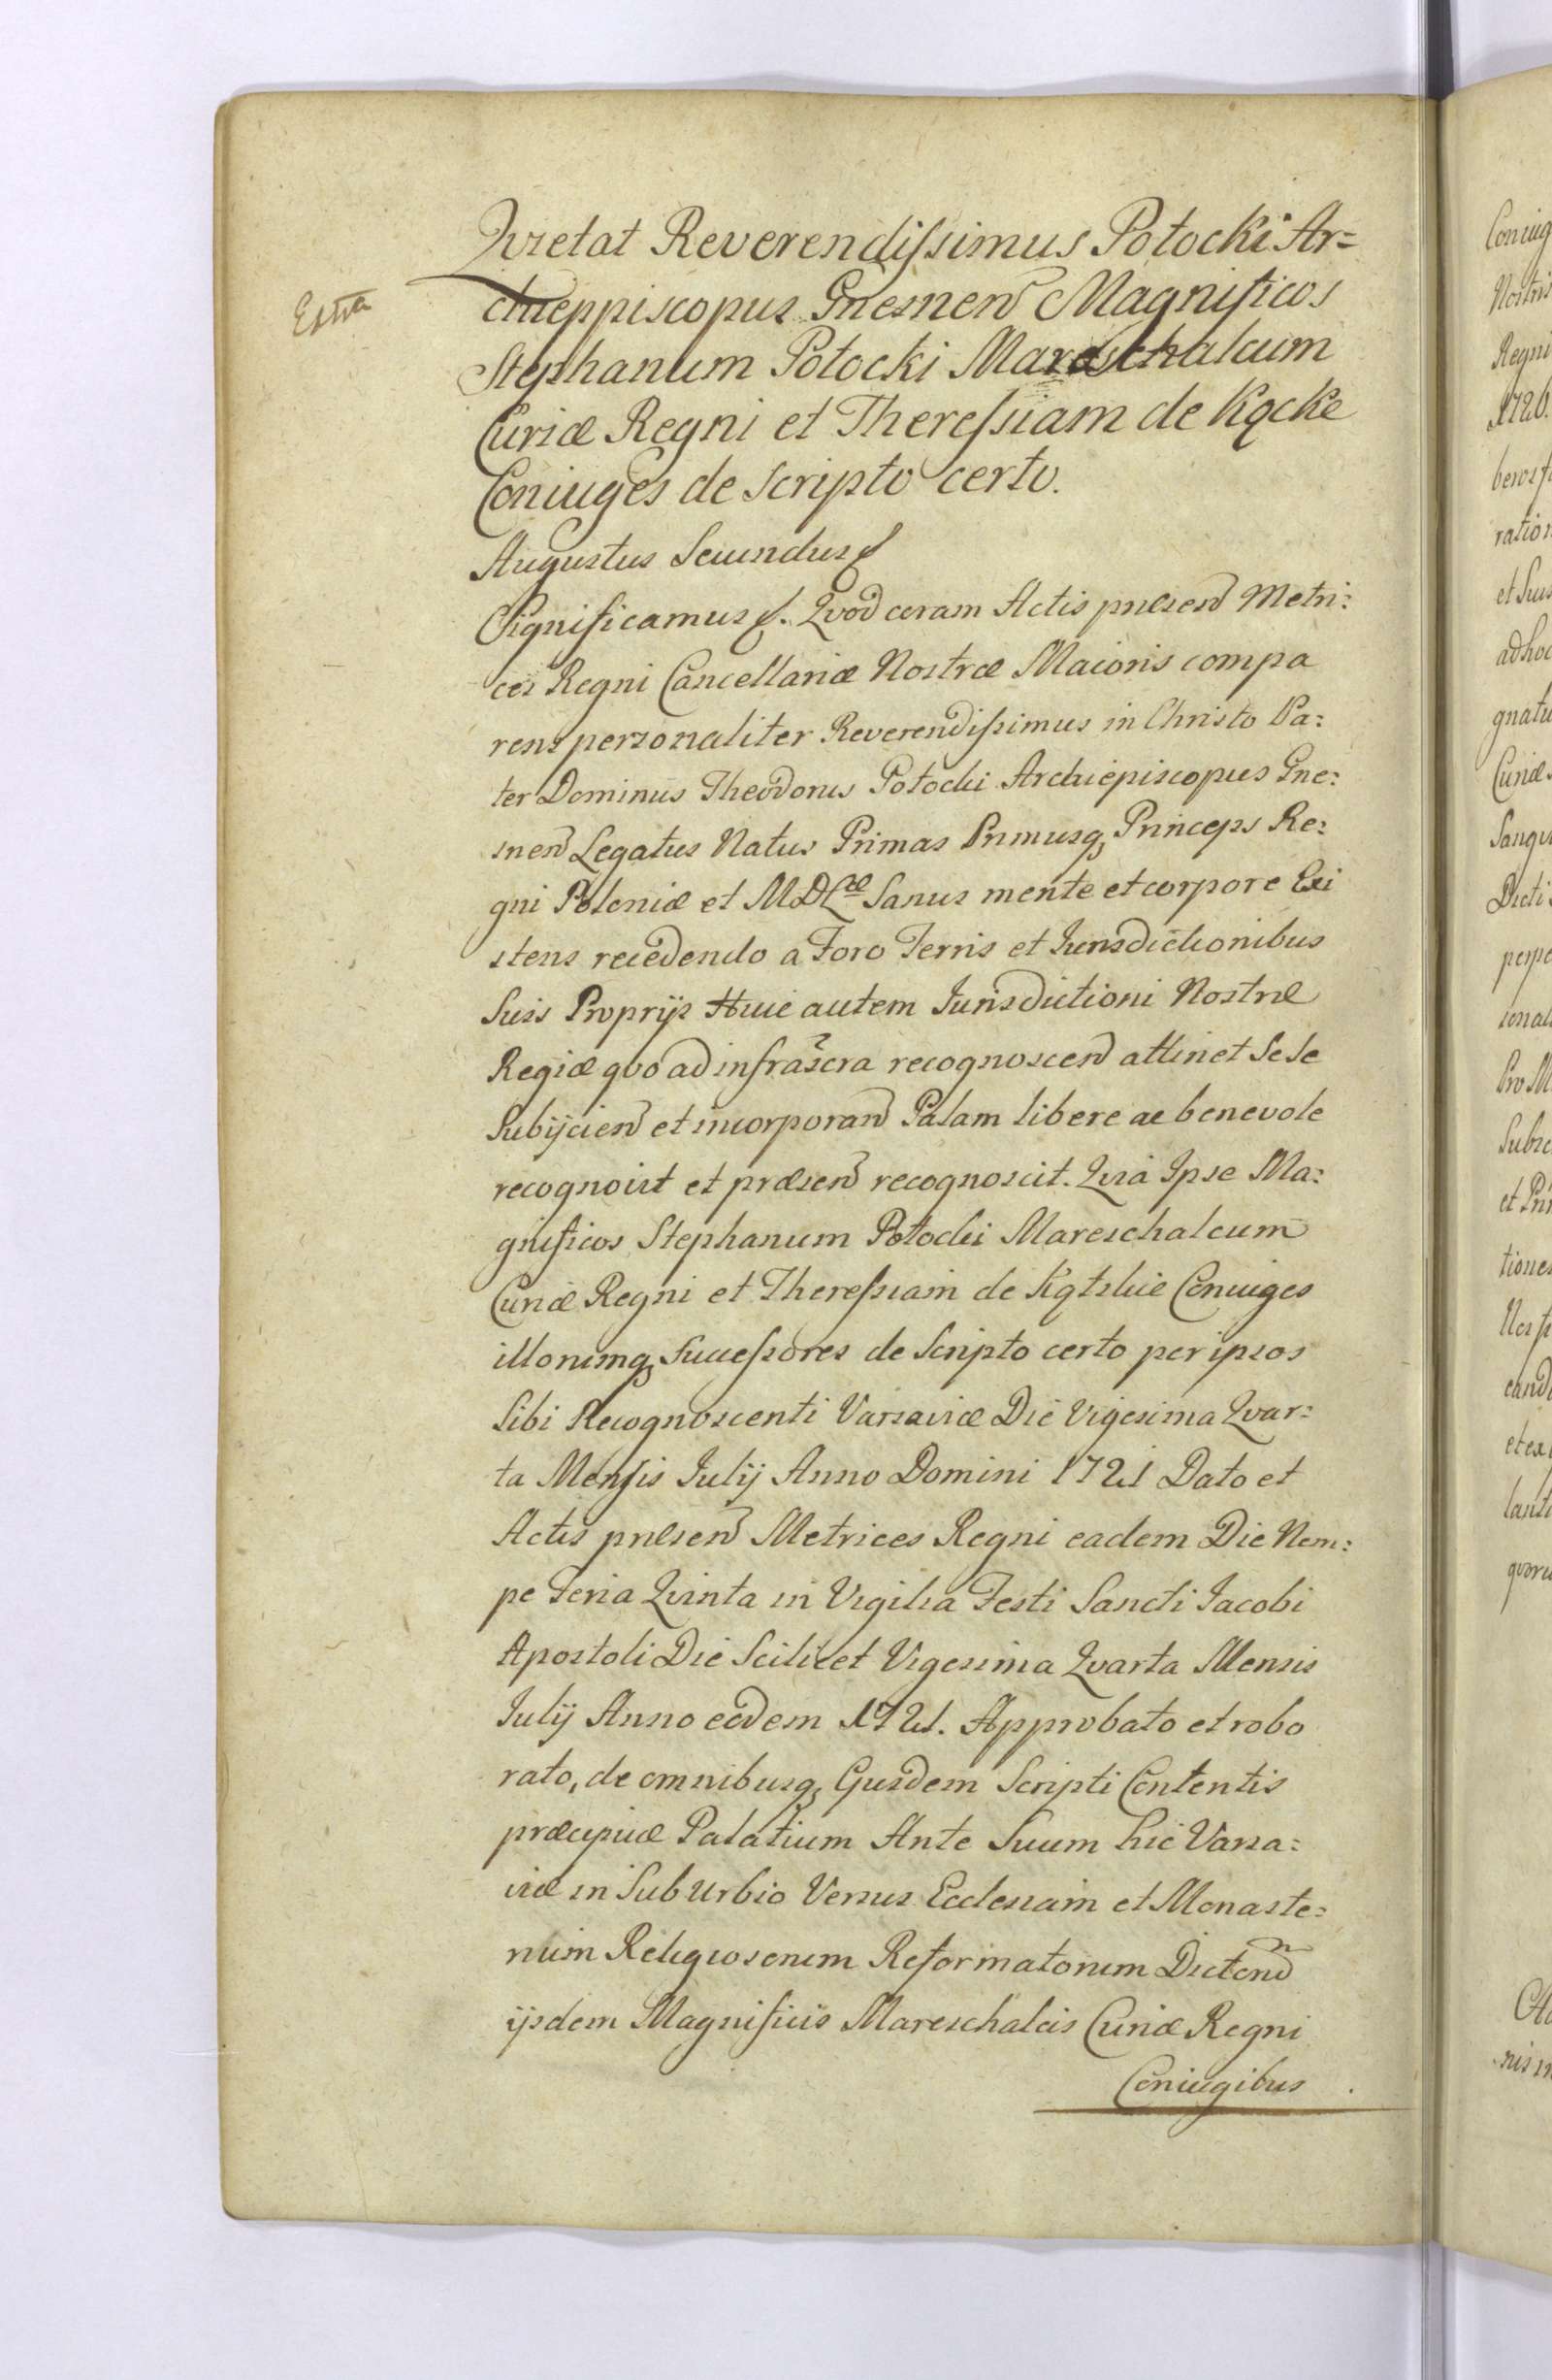 Qvietat Reverendissimus Potocki Ar=
chieppiscopus Gnesnen̄ Magnificos
Extra
Stephanum Potocki Mareschalcum
Curiæ Regni et Theressiam de Kącke
Coniuges de scripto certo.
Augustus Secundus
Significamus Qvod coram Actis præsen̄ Metri:
ces Regni Cancellariæ Nostræ Maioris compa
rens personaliter Reverendissimus in Christo Pa:
ter Dominus Theodorus Potocki Archiepiscopus Gne:
snen̄ Legatus Natus Primas Primusq, Princeps Re:
gni Poloniæ et MDLæ Sanus mente et corpore Exi
stens recedendo a Foro Terris et Iurisdictionibus
Suis Proprijs Huic autem Iurisdictioni Nostræ
Regiæ qvo ad infrascra recognoscen̄ attinet Sese
Subijcien̄ et incorporan̄ Palam libere ac benevole
recognovit et præsen̄ recognoscit. Qvia Ipse Ma:
gnificos Stephanum Potocki Mareschalcum
Curiæ Regni et Theressiam de Kątskie Coniuges
illorumq, Successores de Scripto certo per ipsos
Sibi Recognoscenti Varsaviæ Die Vigesima Qvar:
ta Mensis Iulij Anno Domini 1721 Dato et
Actis præsen̄ Metrices Regni eadem Die Nem:
pe Feria Qvinta in Vigilia Festi Sancti Iacobi
Apostoli Die Scilicet Vigesima Qvarta Mensis
Iulij Anno eodem 1721. Approbato et robo
rato, de omnibusq, Eiusdem Scripti Contentis
præcipuæ Palatium Ante Suum hic Varsa:
viæ in SubUrbio Versus Ecclesiam et Monaste:
rium Religiosorum Reformatorum
ijsdem Magnificis Mareschalcis Curiæ Regni
Coniugibus